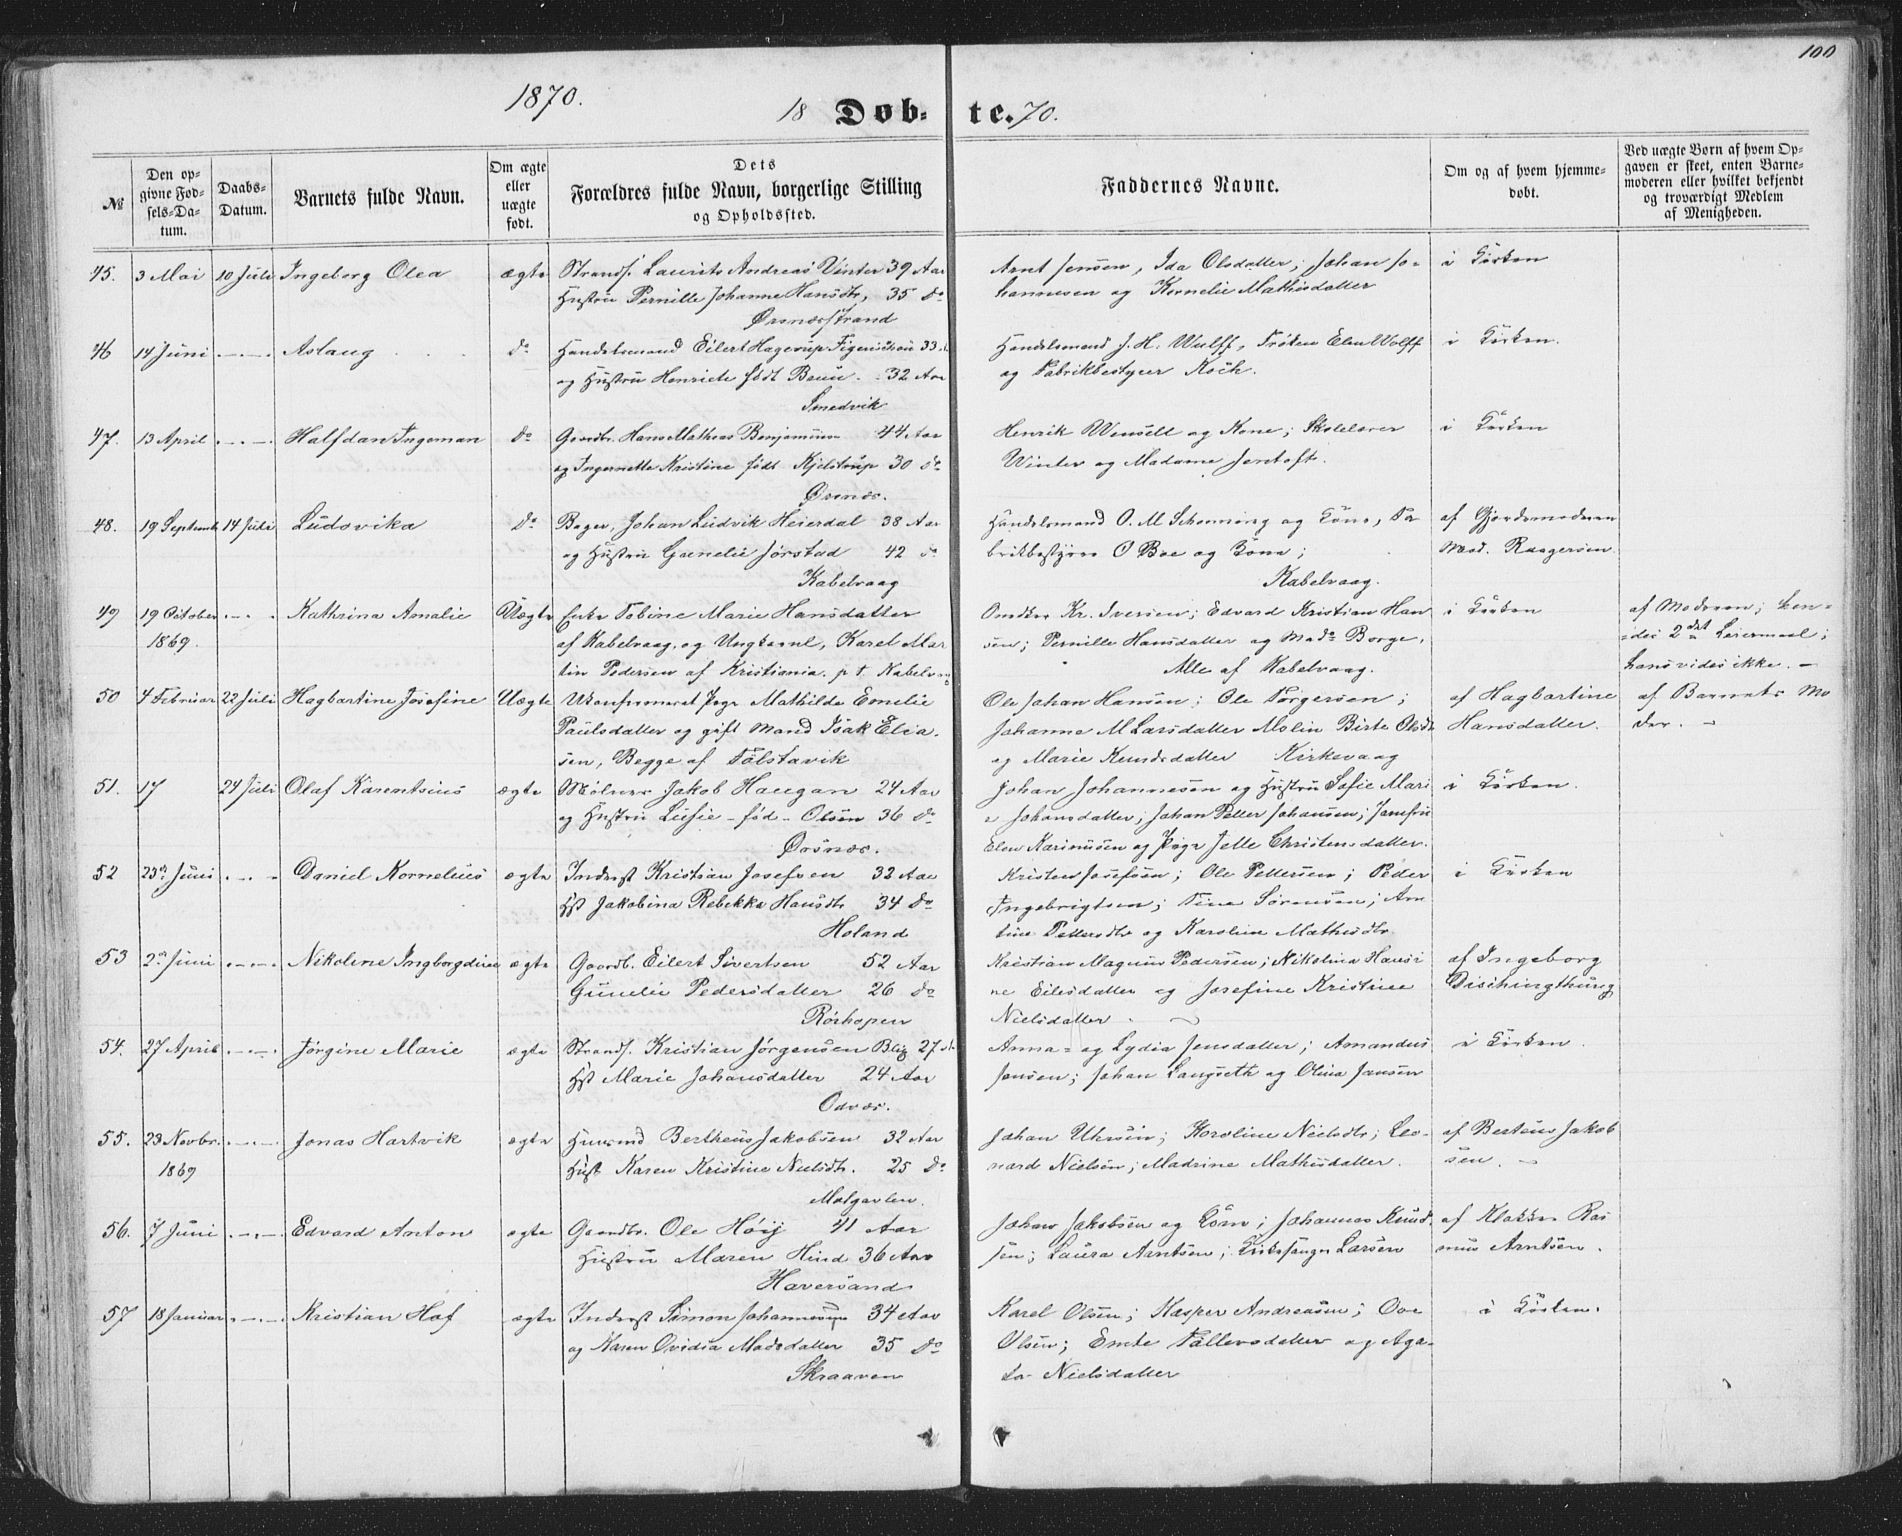 100
1870.
18 Døb- te. 70.
№
Den op-
givne Fød-
sels-Da-
tum.
Daabs-
Datum.
Barnets fulde Navn.
Om ægte
eller
uægte
født.
Dets
Forældres fulde Navn, borgerlige Stilling
og Opholdssted.
Faddernes Navne.
Om og af hvem hjemme-
døbt.
Ved uægte Børn af hvem Op-
gaven er skeet, enten Barne-
moderen eller hvilket bekjendt
og troværdigt Medlem
af Menigheden.
45. 3 Mai 10 Juli Ingeborg Olea ægte Strands. Laurits Andreas Vinter 39 Aar
Hustru Pernille Johanne Hansdtr, 35 do
Ørsnæsstrand
Arnt Jensen, Ida Olsdatter; Johan Jo-
hannesen og Kornelie Mathisdatter
i Kirken
46 14 Juni Aslaug do Handelsmand Eilert Hagerup 33
og Hustru Henriete født 32 Aar
Smedvik
Handelsmand J. H. Wulff, Frøken Elen Wolff
og Fabrikbestyrer Koch.
i Kirken.
47. 13 April Halfdan Ingeman do Gaardbr. Hans Mathias Benjaminsen 44 Aar
og Ingernette Kristine født Kjelstrup 30 do
Ørsnæs.
Henrik Wensell og Kone; Skolelærer
Winter og Madame Jentoft.
i Kirken
48. 19 Septemb 14 Juli Ludovika do Bager, Johan Ludvik Heierdal 38 Aar
og Hustru Gunelie Jørstad 42 do
Kabelvaag
Handelsmand O. M. Schønning og Kone, Fa
brikbestyrer O Boe og Kone;
Kabelvaag.
af Gjordemoderen
Mad. Raagersen
49 19 October
1869. Kathrina Amalie Uægte Enke Tobine Marie Hansdatter
af Kabelvaag, og Ungkarl, Karel Mar
tin Pedersen af Kristiania. p t. Kabelvaag
Kr. Iversen; Edvard Kristian Han
sen; Pernille Hansdatter og Mad. Borge,
Alle af Kabelvaag.
i Kirken
af Moderen; hen-
des 2det Leiermaal;
hans vides ikke. —
50 4 Februar 22 Juli Hagbartine Josefine Uægte Ukonfirmeret Pige Mathilde Emelie
Paulsdatter og gift Mand Isak Elia-
sen, Begge af Tølstavik
Ole Johan Hansen; Ole Torgersen;
Johanne M Larsdatter Molin Birte Olsdtr
og Marie Knudsdatter Kirkevaag
af Hagbartine
Hansdatter.
af Barnets Mo
der. —
51. 17 24 Juli Olaf Karentsius ægte Møllner Jakob Haugan 24 Aar
og Hustru Lusie – fød – Olsen 36 do
Ørsnæs.
Johan Johannesen og Hustru Sofie Mari
e Johansdatter; Johan Petter Johansen; Jomfru
Elen Rasmusen og Pige Jette Christensdatter.
i Kirken.
52 23de Juni Daniel Kornelius ægte Inderst Kristian Josefsen 32 Aar
Hst Jakobina Rebekka Hansdtr 34 do
Holand
Kristen Josefsen; Ole Pettersen; Peder
Ingebrigtsen; Tina Sørensen; An
tine Pettersdtr og Karoline Mathisdtr.
i Kirken
53 2den Juni Nikoline Ingborgdine ægte Gaardb. Eilert Sivertsen 52 Aar
Gunelie Pedersdatter 26 do
Rørhopen
Kristian Magnus Pedersen; Nikolina Hansi
ne Eilesdatter og Josefine Kristine
Nielsdatter.
af Ingeborg
Dischingthung
54. 27 April Jørgine Marie ægte Strands. Kristian Jørgensen Blix 27 A.
Hst Marie Johansdatter 24 Aar
Odvær.
Anna– og Lydia Jensdatter; Amandus
Jensen; Johan Langseth og Olina Jansen
i Kirken.
55. 23 Novbr.
1869 Jonas Hartvik ægte Husmd Bertheus Jakobsen 32 Aar
Hust Karen Kristine Nielsdtr. 25 do
Molgavlen.
Johan Uhrsin; Karoline Nielsdtr; Leo-
nard Nielsen; Madrine Mathisdatter.
af Berteus Jakob
sen. —
56. 7 Juni Edvard Anton ægte Gaardbr. Ole Høij 41 Aar
Hustru Maren Hind 36 Aar
Haversand
Johan Jakobsen og Kone; Johannes Knud
sen; Laura Arntsen; Kirkesanger Larsen
af Klokker Ras
mus Arntsen.
57 18 Januar Kristian Haf ægte Inderst Simon Johannesen 34 Aar
og Karen Ovidia Madsdatter 35 do
Skraaven
Karel Olsen; Kasper Andreasen; Ove
Olsen; Emte Tollevsdatter og Aga-
ta Nielsdatter
i Kirken.